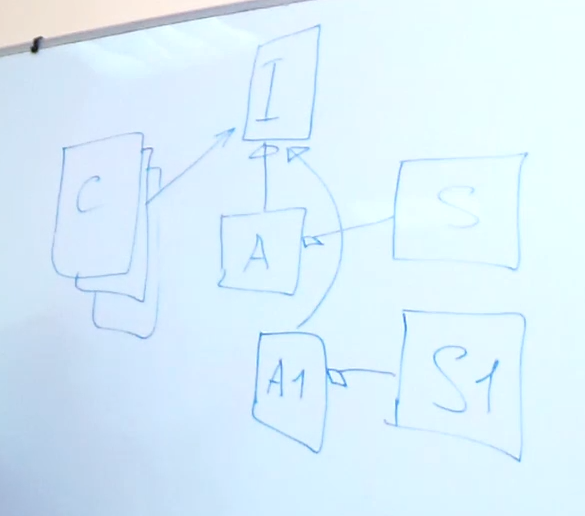 I
C
A
S
A1
S1